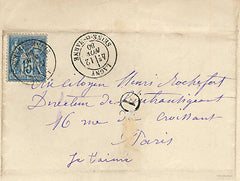 LAGNY
SEINE-&-MARNE
12
NOV
80
15
Au citoyen Henri Rochefort
Directeur de l'Intransigeant
16 rue du Croissant
Paris